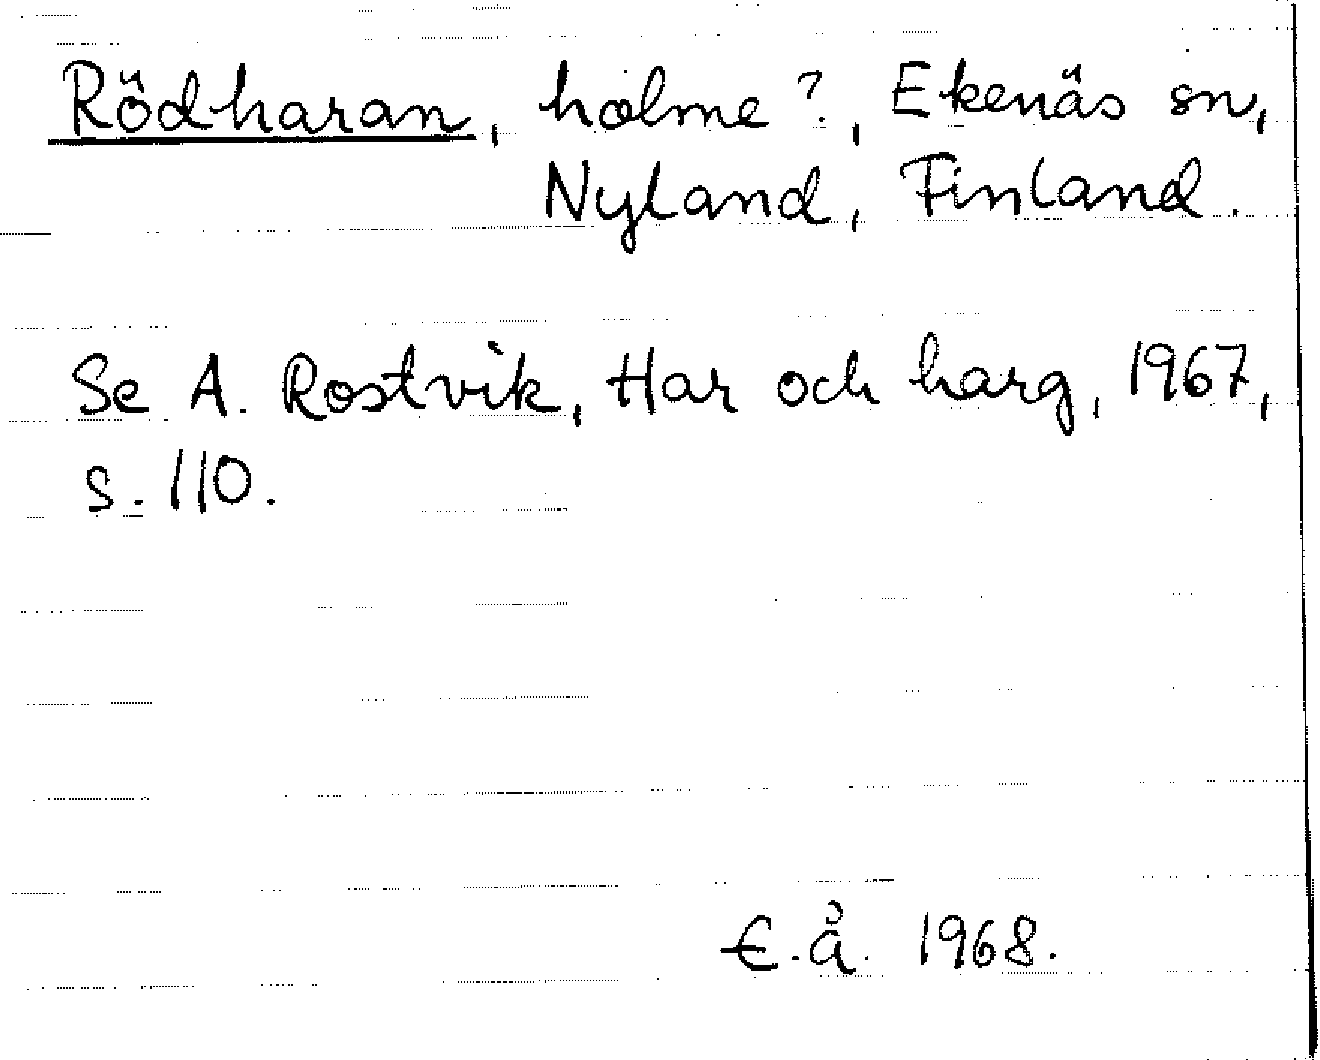 Rödharan, holme?, Ekenäs sn,
Nyland, Finland.
Se A. Rostvik, Har och harg, 1967,
s. 110.
E.Å. 1968.